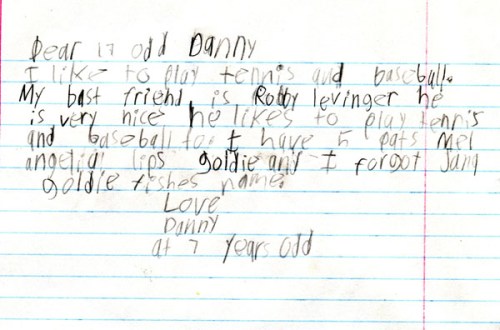 Dear 17 odd Danny
I like to play tennis and baseball.
My bast friend is Robby levinger he
is very nice he likes to play tennis
and baseball to. I have 5 pats Mel
angelia lips goldie and I forgot
goldie fishes name.
Love
Danny
at 7 years odd